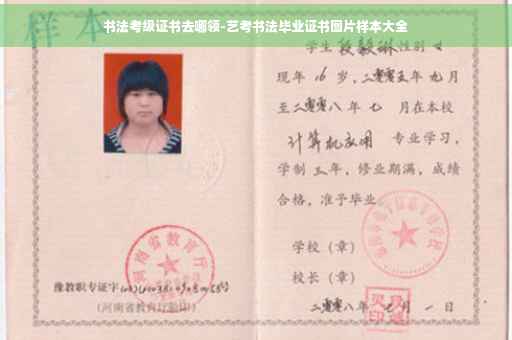 书法考级证书去哪领-艺考书法毕业证书图片样本大全
样本
学生段毅琳性别女
现年16岁，二零零五年九月
至二零零八年七 月在本校
计算机应用 专业学习，
学制三年，修业期满，成绩
合格，准予毕业。
学校（章）
校长（章）
二零零八年 月一日
河南省教育厅
豫教职专证字
（河南省教育厅验印）